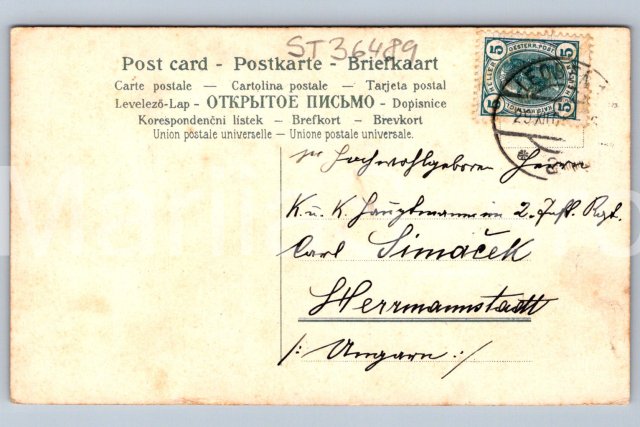 ST36489
Post card - Postkarte - Briefkaart
Carte postale — Cartolina postale — Tarjeta postal
Levelező-Lap - ОТКРЫТОЕ ПИСЬМО - Dopisnice
Korespondenční listek — Brefkort — Brevkort
Union postale universelle — Unione postale universale.
5 OESTERR. POST 5
HELLER
5 5
29 XII
Hochwohlgeboren Herrn
K. u. K. Hauptmann im 2. Inft. Rgt.
Carl Simáček
Herrmannstadt
/: Ungarn :/